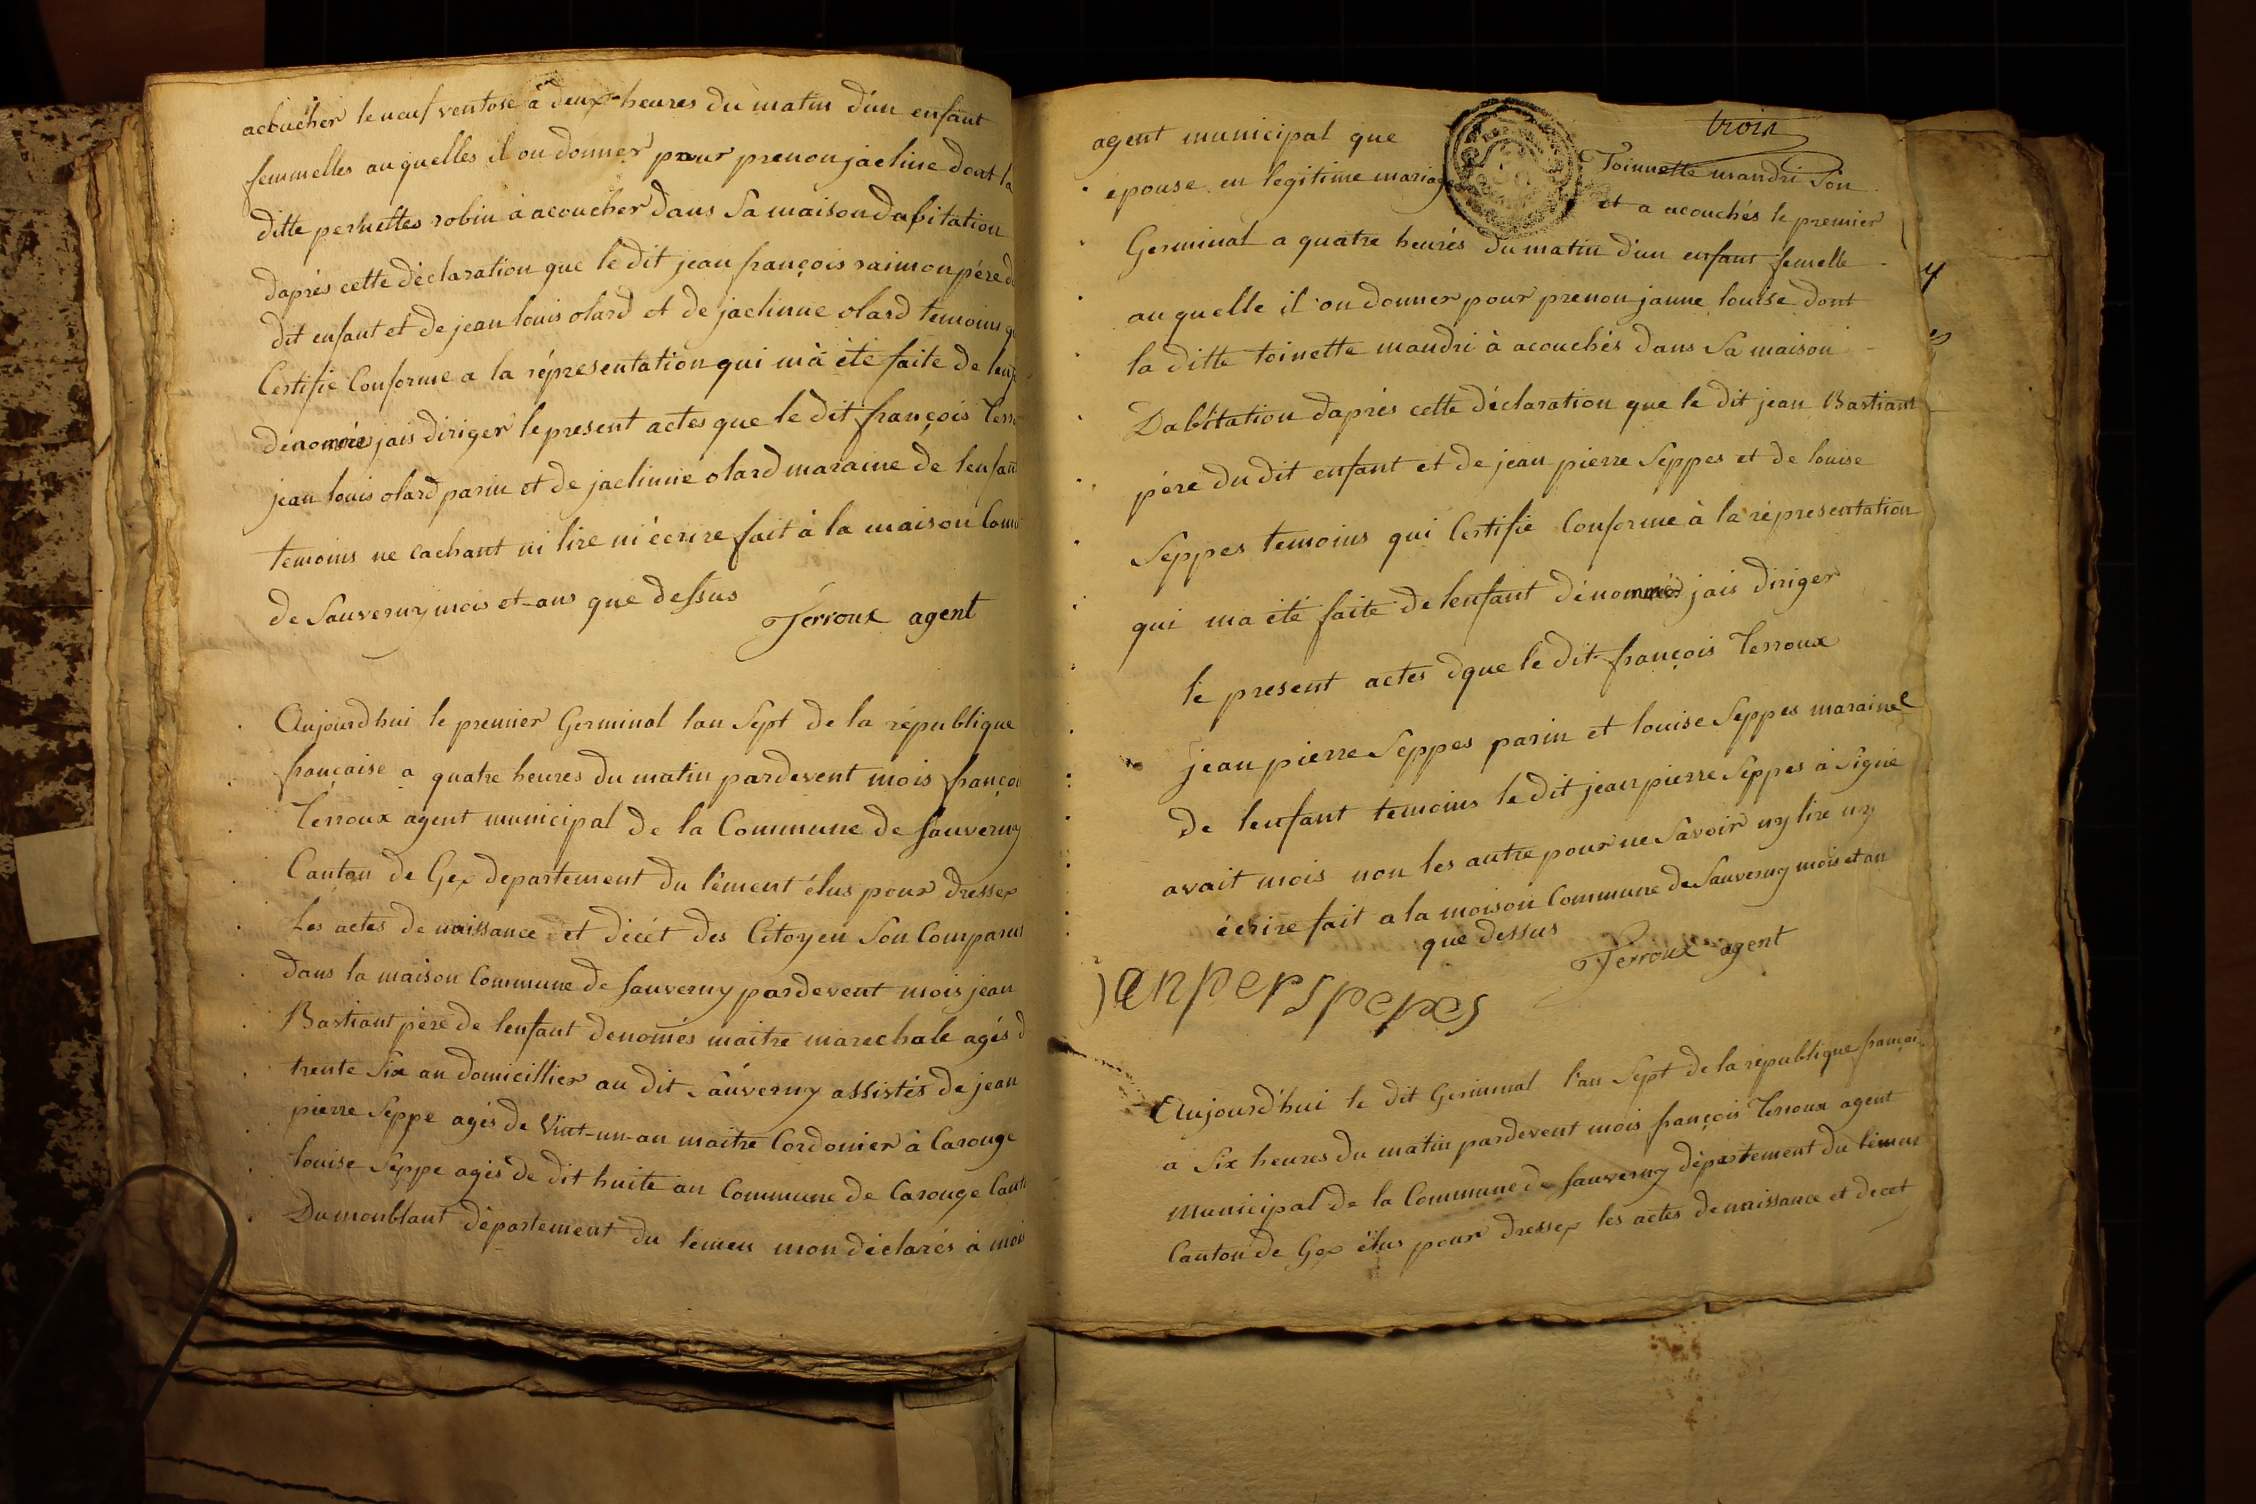 acoucher le neuf ventose à deux heures du matin d'un enfant
femmelles auquelles il on donner pour prenon jacline dont la
ditte pernettes robin à acoucher dans sa maison dabitation
daprés cette déclaration que le dit jean françois raimon pére du
dit enfant et de jean louis olard et de jaclinne olard temoins qu
Certifie Conforme a la réprésentation qui mà été faite de lenf
dénomées jais diriger le present actes que le dit françois Terr
jean louis olard parin et de jaclinne olard maraine de lenfan
temoins ne cachant ni lire ni écrire fait à la maison Comm
de Sauverny mois et ans que dessus
Terroux agent
Aujourdhui le premier Germinal lan Sept de la république
française a quatre heures du matin pardevent mois françoi
Terroux agent municipal de la Commune de Sauverny
Canton de Gex departement du lément élus pour dresser
les actes de naissance et décét des Citoyen Son Comparus
dans la maison Commune de Sauverny pardevent mois jean
Bastiant pére de lenfant denomés maitre marechale agés d
trente Six an domicillier au dit Sauverny assistés de jean
pierre Seppe agés de Vint-un-an maitre Cordonier à Carouge
louise Seppe agés de dit huite an Commune de Carouge Cant
Du monblant département du lemen mon déclarés à mois
trois
agent municipal que Toinnette mandri Son
épouse en legitime mariage et a acouchés le premier
Germinal a quatre heurés du matin d'un enfant femelle
auquelle il on donner pour prenon janne louise dont
la ditte toinette mandri à acouchés dans sa maison
Dabitation daprés cette déclaration que le dit jean Bastiant
pére du dit enfant et de jean pierre Seppes et de louise
Seppes temoins qui Certifie Conforme à la réprésentation
qui ma été faite de lenfant dénommés jais diriger
le present actes dque le dit françois Terroux
jean pierre Seppes parin et louise Seppes maraine
de lenfant temoins le dit jean pierre Seppes à Signé
avait mois non les autre pour ne Savoir ny lire ny
écrire fait a la maison Commune de Sauverny mois et an
que dessus
Terroux agent
janperspepes
Aujourd'hui le dit Germinal l'an Sept de la république françai
a Six heures du matin pardevent mois françois Terroux agent
municipal de la Commune de Sauverny département du lémen
Canton de Gex élus pour dresser les actes de naissance et decet